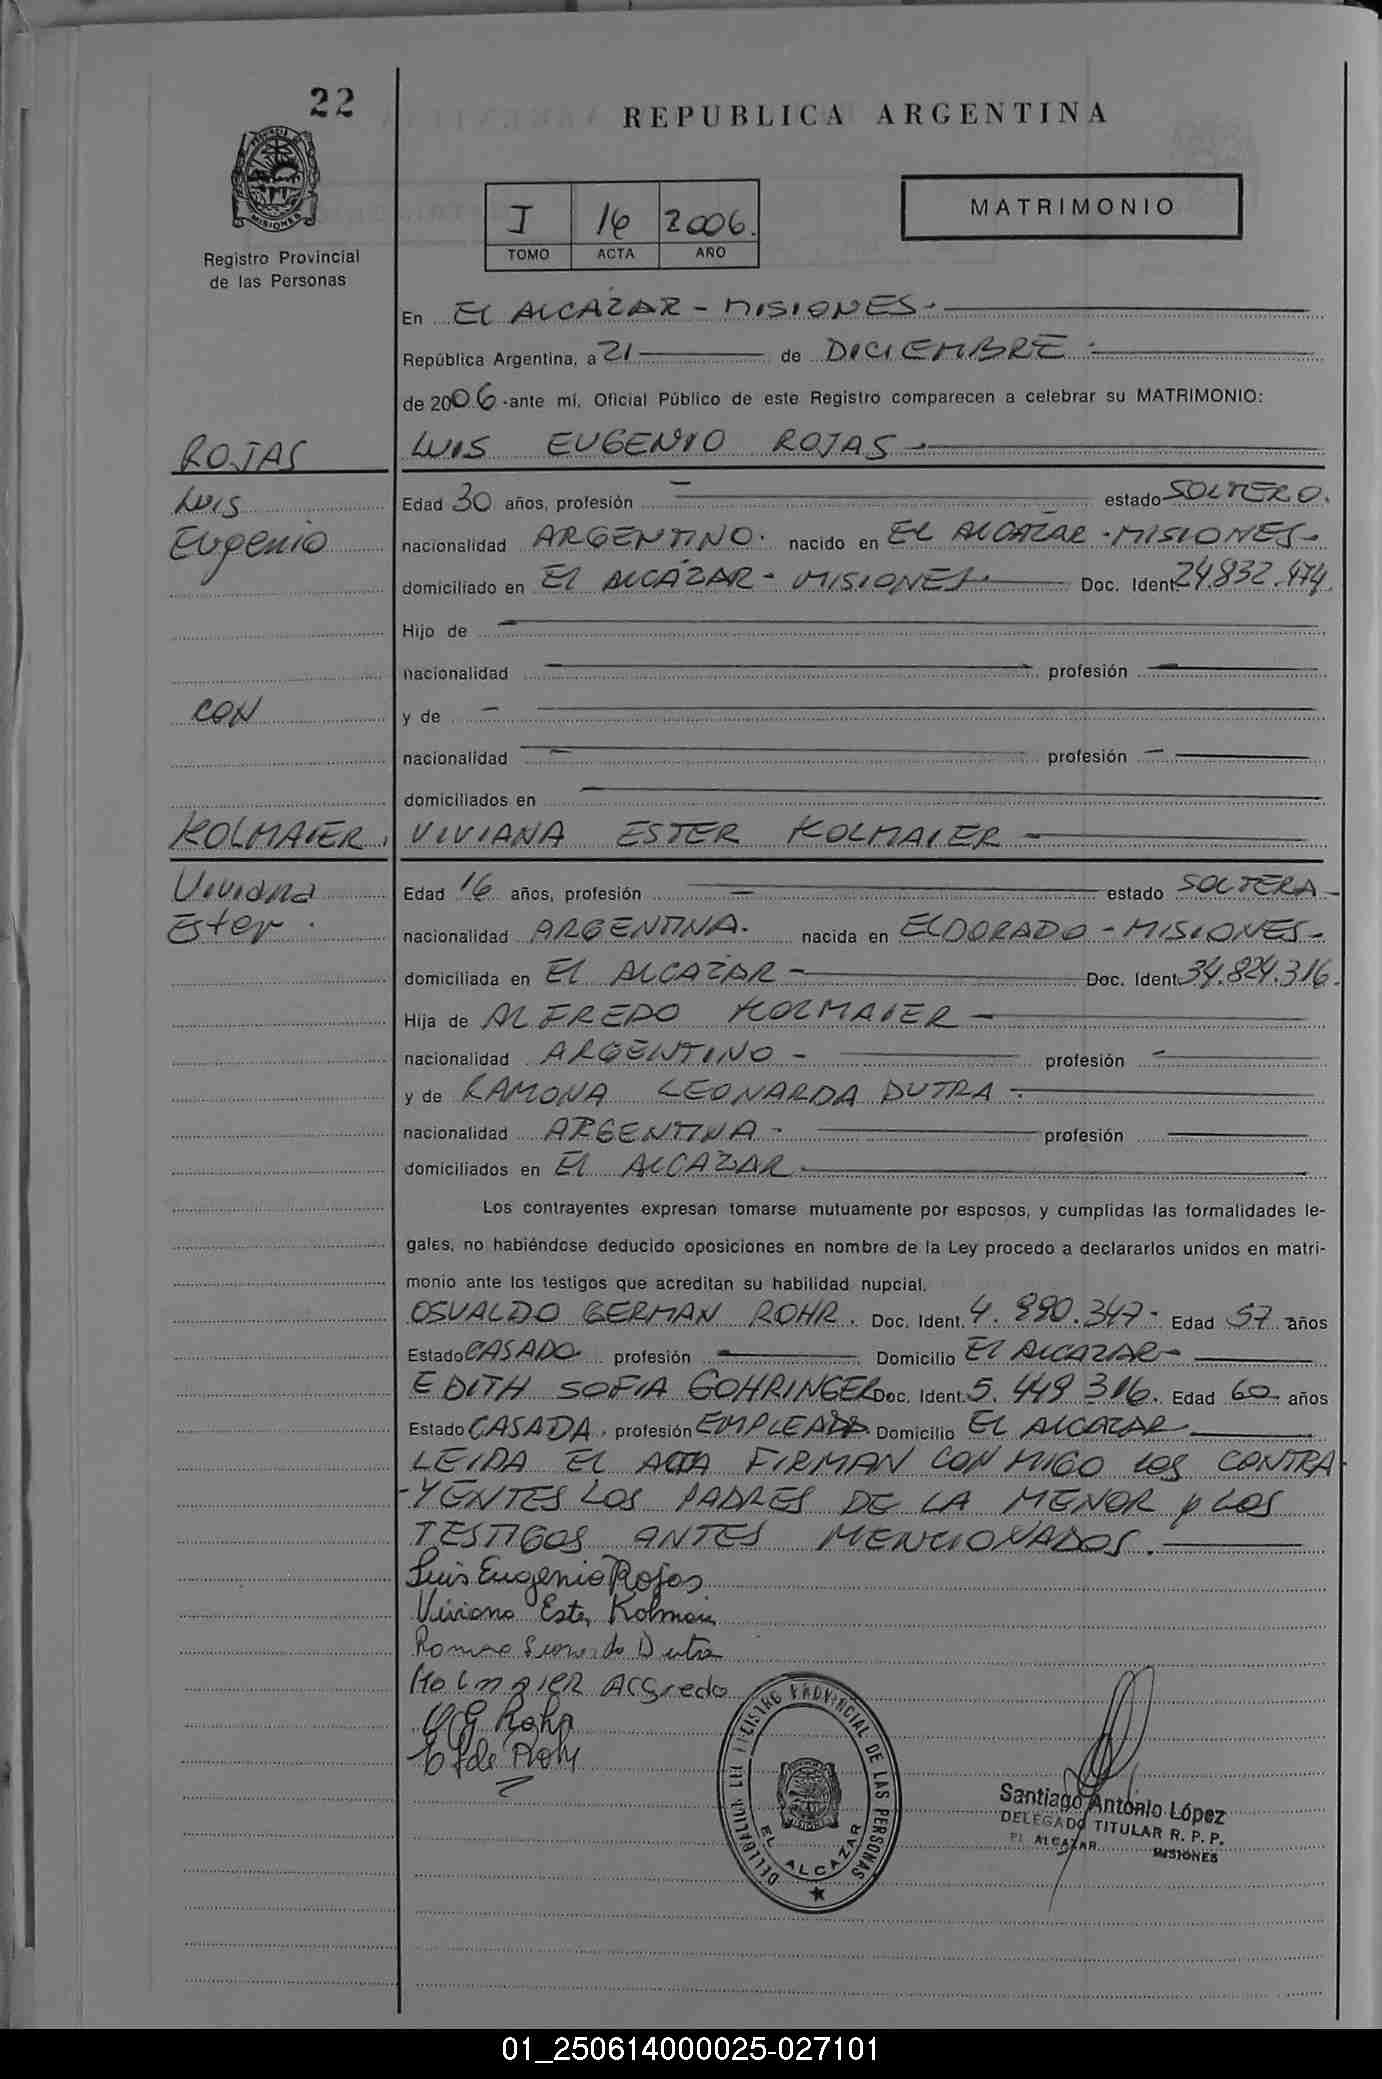 22
REPUBLICA ARGENTINA
MISIONES
Registro Provincial
de las Personas
I 16 2006.
TOMO ACTA AÑO
MATRIMONIO
En EL ALCAZAR - MISIONES.
República Argentina, a 21 de DICIEMBRE.
de 2006 - ante mí, Oficial Público de este Registro comparecen a celebrar su MATRIMONIO:
ROJAS
LUIS EUGENIO ROJAS
Luis
Edad 30 años, profesión — estado SOLTERO.
Eugenio
nacionalidad ARGENTINO. nacido en EL ALCAZAR - MISIONES -
domiciliado en El ALCAZAR - MISIONES. Doc. Ident. 24.832.474.
Hijo de —
nacionalidad — profesión —
CON
y de —
nacionalidad — profesión —
domiciliados en —
KOLMAIER.
VIVIANA ESTER KOLMAIER -
Viviana
Edad 16 años, profesión — estado SOLTERA -
Ester.
nacionalidad ARGENTINA. nacida en ELDORADO - MISIONES -
domiciliada en El ALCAZAR - Doc. Ident. 34.824.316.
Hija de ALFREDO KOLMAIER -
nacionalidad ARGENTINO - profesión —
y de RAMONA LEONARDA DUTRA.
nacionalidad ARGENTINA - profesión —
domiciliados en El ALCAZAR.
Los contrayentes expresan tomarse mutuamente por esposos, y cumplidas las formalidades le-
gales, no habiéndose deducido oposiciones en nombre de la Ley procedo a declararlos unidos en matri-
monio ante los testigos que acreditan su habilidad nupcial.
OSVALDO GERMAN ROHR. Doc. Ident. 4.990.347 - Edad 57 años
Estado CASADO. profesión — Domicilio El ALCAZAR -
EDITH SOFIA GOHRINGER Doc. Ident. 5.449.316. Edad 60 años
Estado CASADA. profesión EMPLEADA. Domicilio EL ALCAZAR
LEIDA EL ACTA FIRMAN CON MIGO LOS CONTRA
-YENTES LOS PADRES DE LA MENOR y LOS
TESTIGOS ANTES MENCIONADOS.
Luis Eugenio Rojas
Viviana Ester Kolmaier
Dutra
KolmaieR Alfredo
O G Rohr
E de Rohr
DELEGACION DEL REGISTRO PROVINCIAL DE LAS PERSONAS
MISIONES
EL ALCAZAR
Santiago Antonio López
DELEGADO TITULAR R. P. P.
EL ALCAZAR MISIONES
01_250614000025-027101